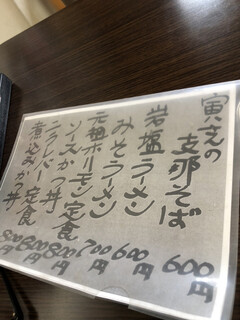 寅さんの
支那そば 600円
岩塩ラーメン 600円
みそラーメン 700円
元祖ホルモン定食 800円
ソースかつ丼 800円
ニラレバー定食
煮込みかつ丼